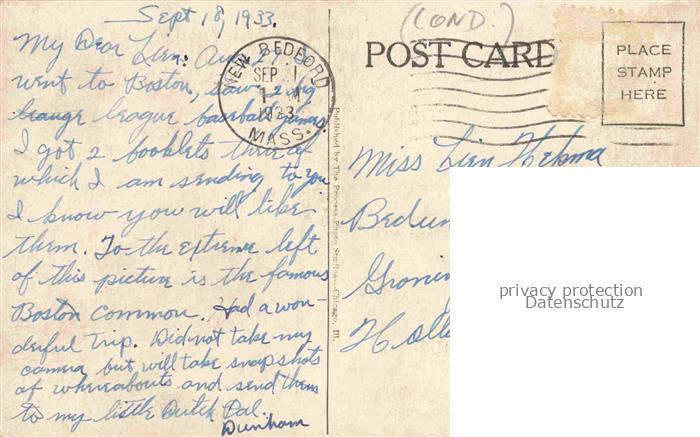 Sept 18, 1933.
My Dear Lien: Aug 27, I
went to Boston, saw 2 big
league league baseball games.
I got 2 booklets there of
which I am sending to you
I know you will like
them. To the extreme left
of this picture is the famous
Boston Common. Had a won-
derful Trip. Did not take my
camera but will take snapshots
of whereabouts and send them
to my little Dutch Pal.
Dunham
NEW BEDFORD
SEP 1
1933
MASS.
Published by The Process Photo Studios—Chicago, Ill.
(COND.)
POST CARD
PLACE
STAMP
HERE
Miss Lien Hekma
Bedum
Gronin
Holl
privacy protection
Datenschutz